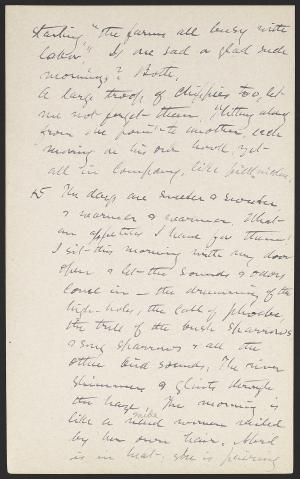 starting, "the farms all busy with
labor." Is one sad or glad such
mornings? Both.
A large troop of Chippies too, let
me not forget them, flitting along
from one point to another, each
moving on his own hook, yet
all in company, like pickerel
15 The days are sweeter & sweeter
& warmer & warmer. What
an appetite I have for them!
I sit this morning with my door
open & let the sounds & odors
come in — the drumming of the
high-holes, the call of phoebe,
the trill of the bush sparrows
& song sparrows & all the
other bird sounds; The river
shimmers & glints through
the haze. The morning is
like a nude woman veiled
by her own hair. April
is in heat; she is